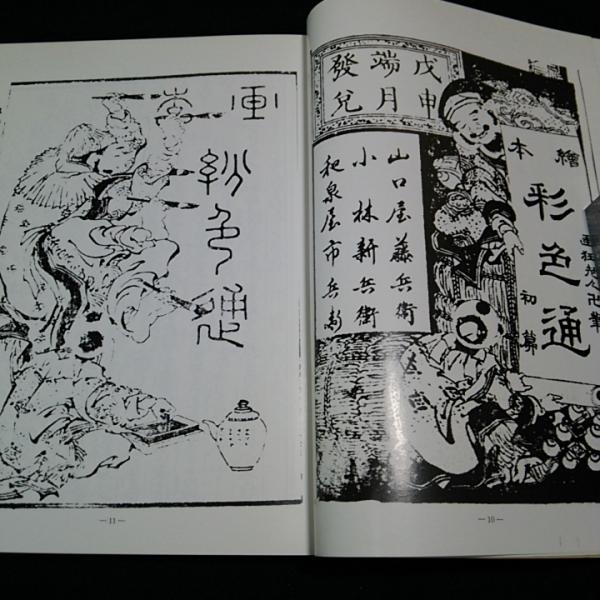 画狂老人卍筆
繪本
彩色通
初篇
戊申
端月
發兌
山口屋藤兵衛
小林新兵衛
和泉屋市兵衛
—10—
色通
—11—